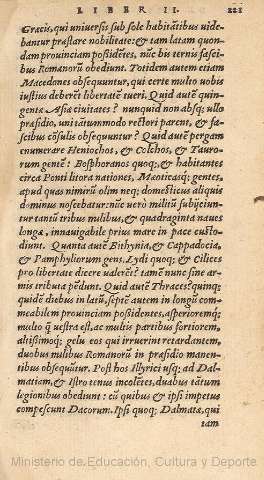 LIBER II. 221
Græcis, qui universis sub sole habitãtibus vide-
bantur præstare nobilitate: & tam latam quon-
dam provinciam possidẽtes, nũc bis ternis fasci-
bus Romanorũ obediunt. Totidem autem etiam
Macedones obsequuntur, qui certe multo vobis
iustius deberẽt libertatẽ tueri. Quid autẽ quin-
gentæ Asiæ civitates? nunquid non absq; ullo
præsidio, uni tãtummodo rectori parent, & fa-
scibus cõsulis obsequuntur? Quid autẽ pergam
enumerare Heniochos, & Colchos, & Tauro-
rum gentẽ? Bosphoranos quoq;, & habitantes
circa Ponti litora nationes, Mæoticasq; gentes,
apud quas nimirũ olim neq; domesticus aliquis
dominus noscebatur: nũc verò militũ subijciun-
tur tantũ tribus milibus, & quadraginta naues
longæ, innavigabile prius mare in pace custo-
diunt. Quanta autẽ Bithynia, & Cappadocia,
& Pamphyliorum gens, Lydi quoq; & Cilices
pro libertate dicere valerẽt? tamẽ nunc sine ar-
mis tributa pẽdunt. Quid autẽ Thraces? quinq;
quidẽ diebus in latũ, septẽ autem in longũ com-
meabilem provinciam possidentes, asperioremq;
multo q̃ vestra est, ac multis partibus fortiorem,
altissimoq; gelu eos qui irruerint retardantem,
duobus milibus Romanorũ in præsidio manen-
tibus obsequũtur. Post hos Illyrici usq; ad Dal-
matiam, & Istro tenus incolẽtes, duabus tãtum
legionibus obediunt: cũ quibus & ipsi impetus
compescunt Dacorum. Ipsi quoq; Dalmatæ, qui
tam
Ministerio de Educación, Cultura y Deporte